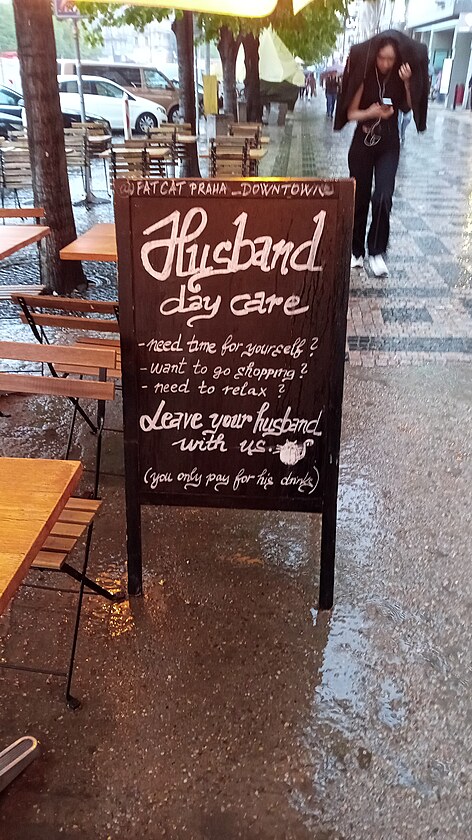 @FATCAT PRAHA_DOWNTOWN
Husband
day care
- need time for yourself ?
- want to go shopping ?
- need to relax ?
Leave your husband
with us
(you only pay for his drinks)